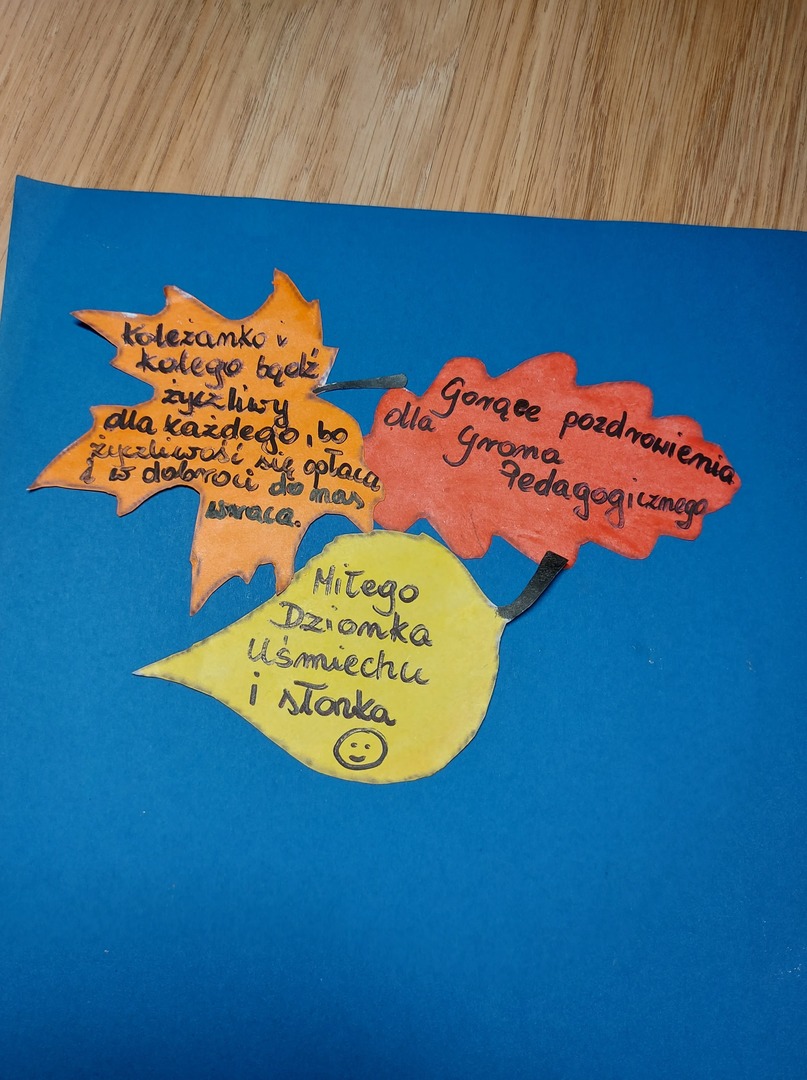 Koleżanko i
kolego bądź
życzliwy
dla każdego, bo
życzliwość się opłaca
i w dobroci do nas
wraca.
Gorące pozdrowienia
dla Grona
Pedagogicznego
Miłego
Dzionka
Uśmiechu
i słonka